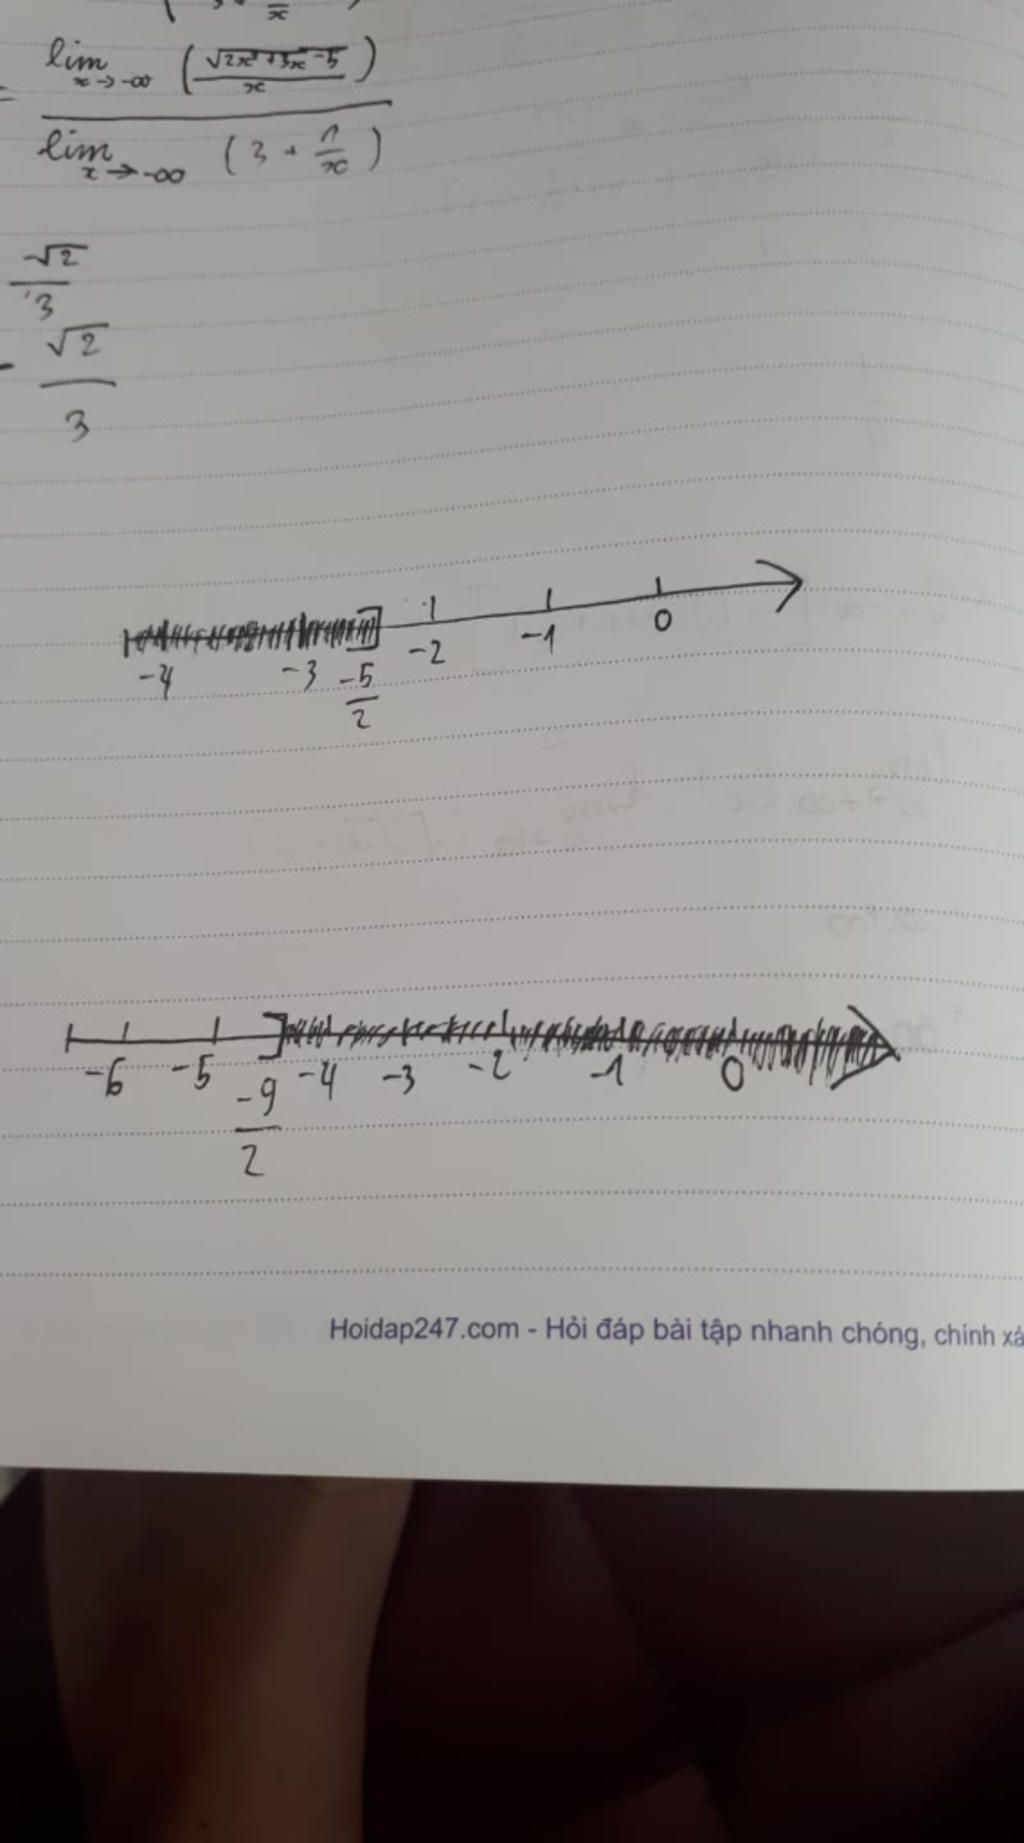 x
lim x→-∞ (√2x²+3x-5 / x)
=
lim x→-∞ (3 + 1/x)
-√2
3
- √2
3
-4 -3 -5/2 -2 -1 0
-6 -5 -9/2 -4 -3 -2 -1 0
Hoidap247.com - Hỏi đáp bài tập nhanh chóng, chính xá